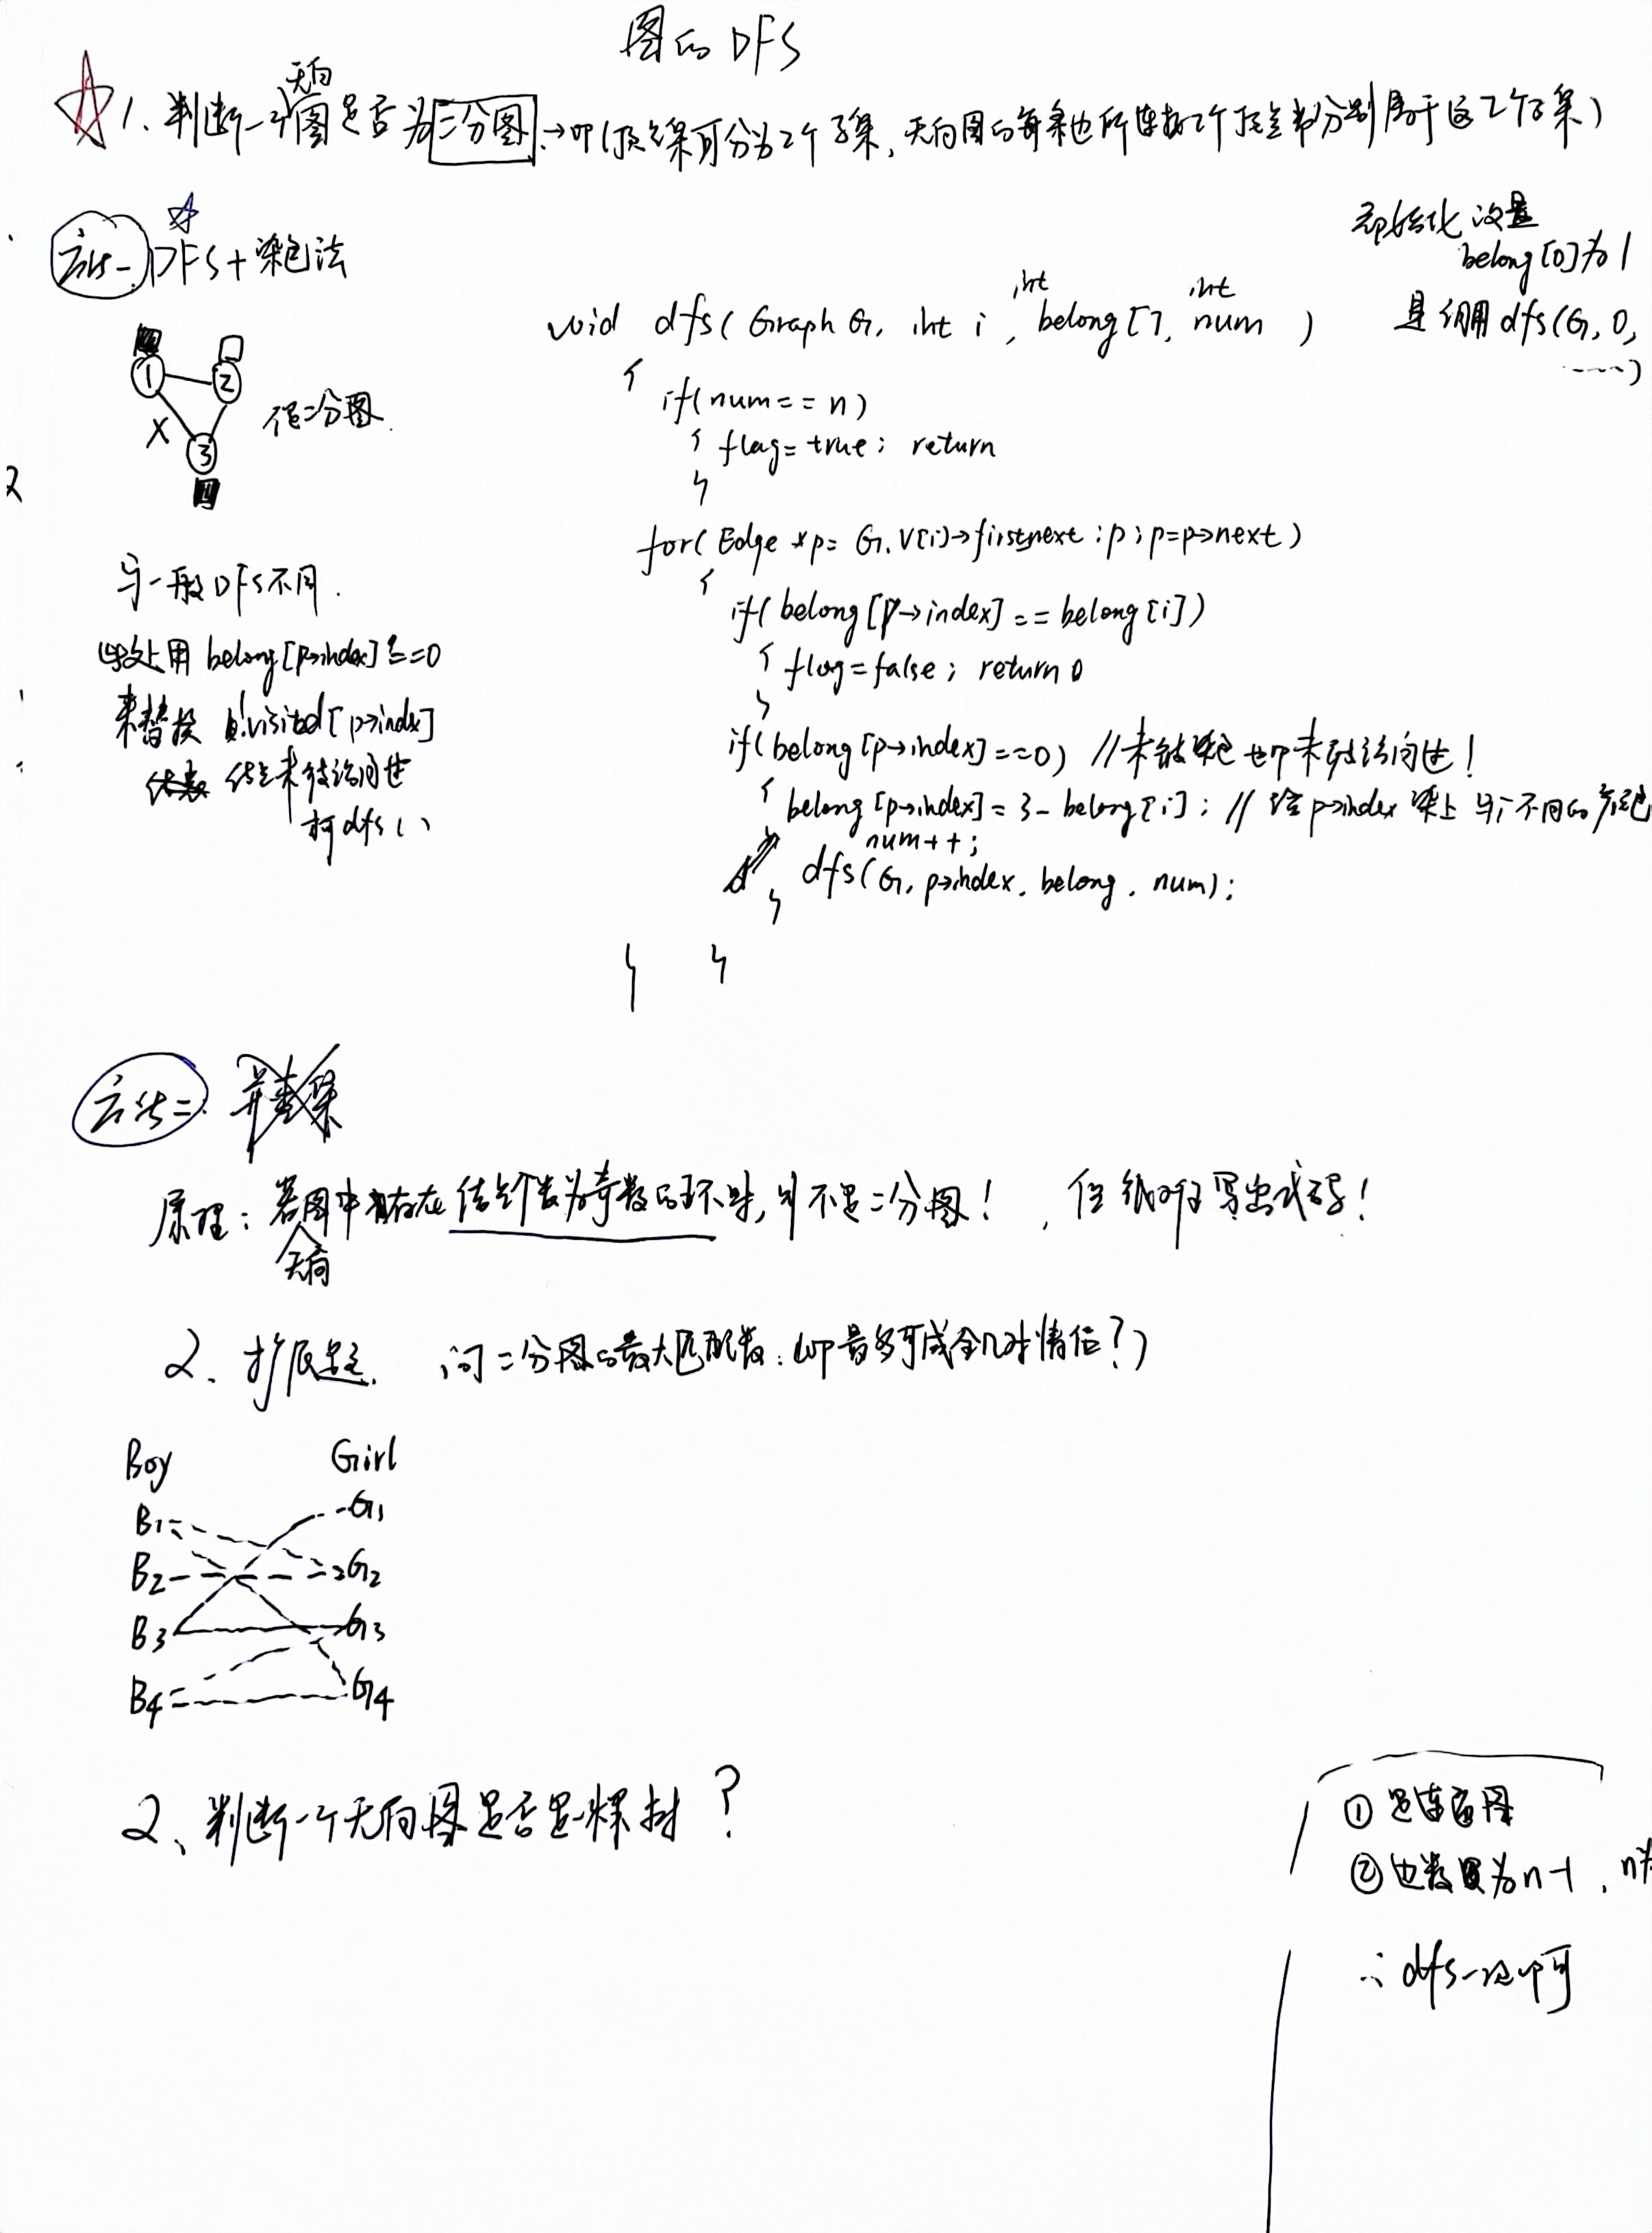 图的DFS
1、判断一个无向图是否为二分图→即(顶点集可分为2个子集,无向图的每条边所连接2个顶点都分别属于这2个子集)
方法一 DFS+染色法
初始化设置
belong[0]为1
void dfs( Graph G, int i, int belong[], int num )
是调用dfs(G, 0,
-----)
1 2
X 3
不是二分图.
{
if(num==n)
{ flag=true; return
}
for( Edge *p= G.V[i]→firstnext ; p ; p=p→next)
{
if( belong[p→index] == belong[i])
{ flag=false; return 0
}
if( belong[p→index]==0) //未被染色也即未被访问过!
{ belong[p→index]=3-belong[i]; //给p→index染上与i不同的颜色
num++;
dfs(G, p→index, belong, num);
}
} }
与一般DFS不同.
此处用 belong[p→index]==0
来替换 !visited[p→index]
结点未被访问过
dfs()
方法二:
原理:若无向图中存在结点个数为奇数的环时,则不是二分图!,但 写出代码!
2、扩展 问二分图的最大匹配数:(即最多可成全几对情侣?)
Boy Girl
B1 G1
B2 G2
B3 G3
B4 G4
2、判断一个无向图是否是一棵树?
① 是连通图
② 边数 为n-1, n为
∴ dfs一次即可